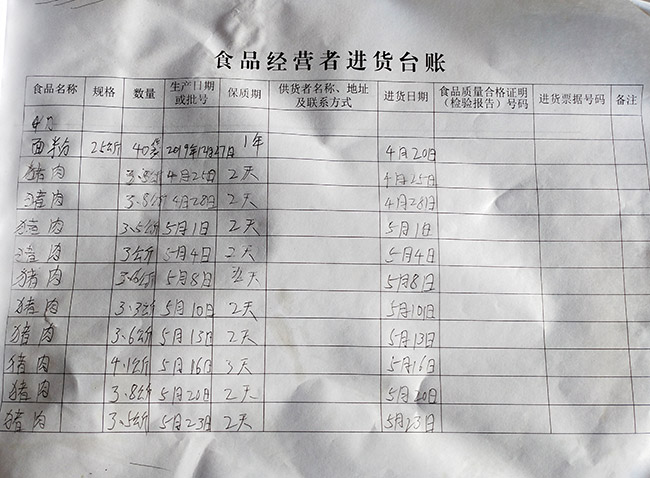 食品经营者进货台账
食品名称 规格 数量 生产日期或批号 保质期 供货者名称、地址及联系方式 进货日期 食品质量合格证明（检验报告）号码 进货票据号码 备注
面粉 25公斤 40袋 2019年12月27日 1年 4月20日
猪肉 4月25日 2天 4月25日
猪肉 3.8公斤 4月28日 2天 4月28日
猪肉 3.5公斤 5月1日 2天 5月1日
猪肉 3公斤 5月4日 2天 5月4日
猪肉 3.6公斤 5月8日 天 5月8日
猪肉 3.3公斤 5月10日 2天 5月10日
猪肉 3.6公斤 5月13日 2天 5月13日
猪肉 4.1公斤 5月16日 3天 5月16日
猪肉 3.8公斤 5月20日 2天 5月20日
猪肉 3.5公斤 5月23日 2天 5月23日